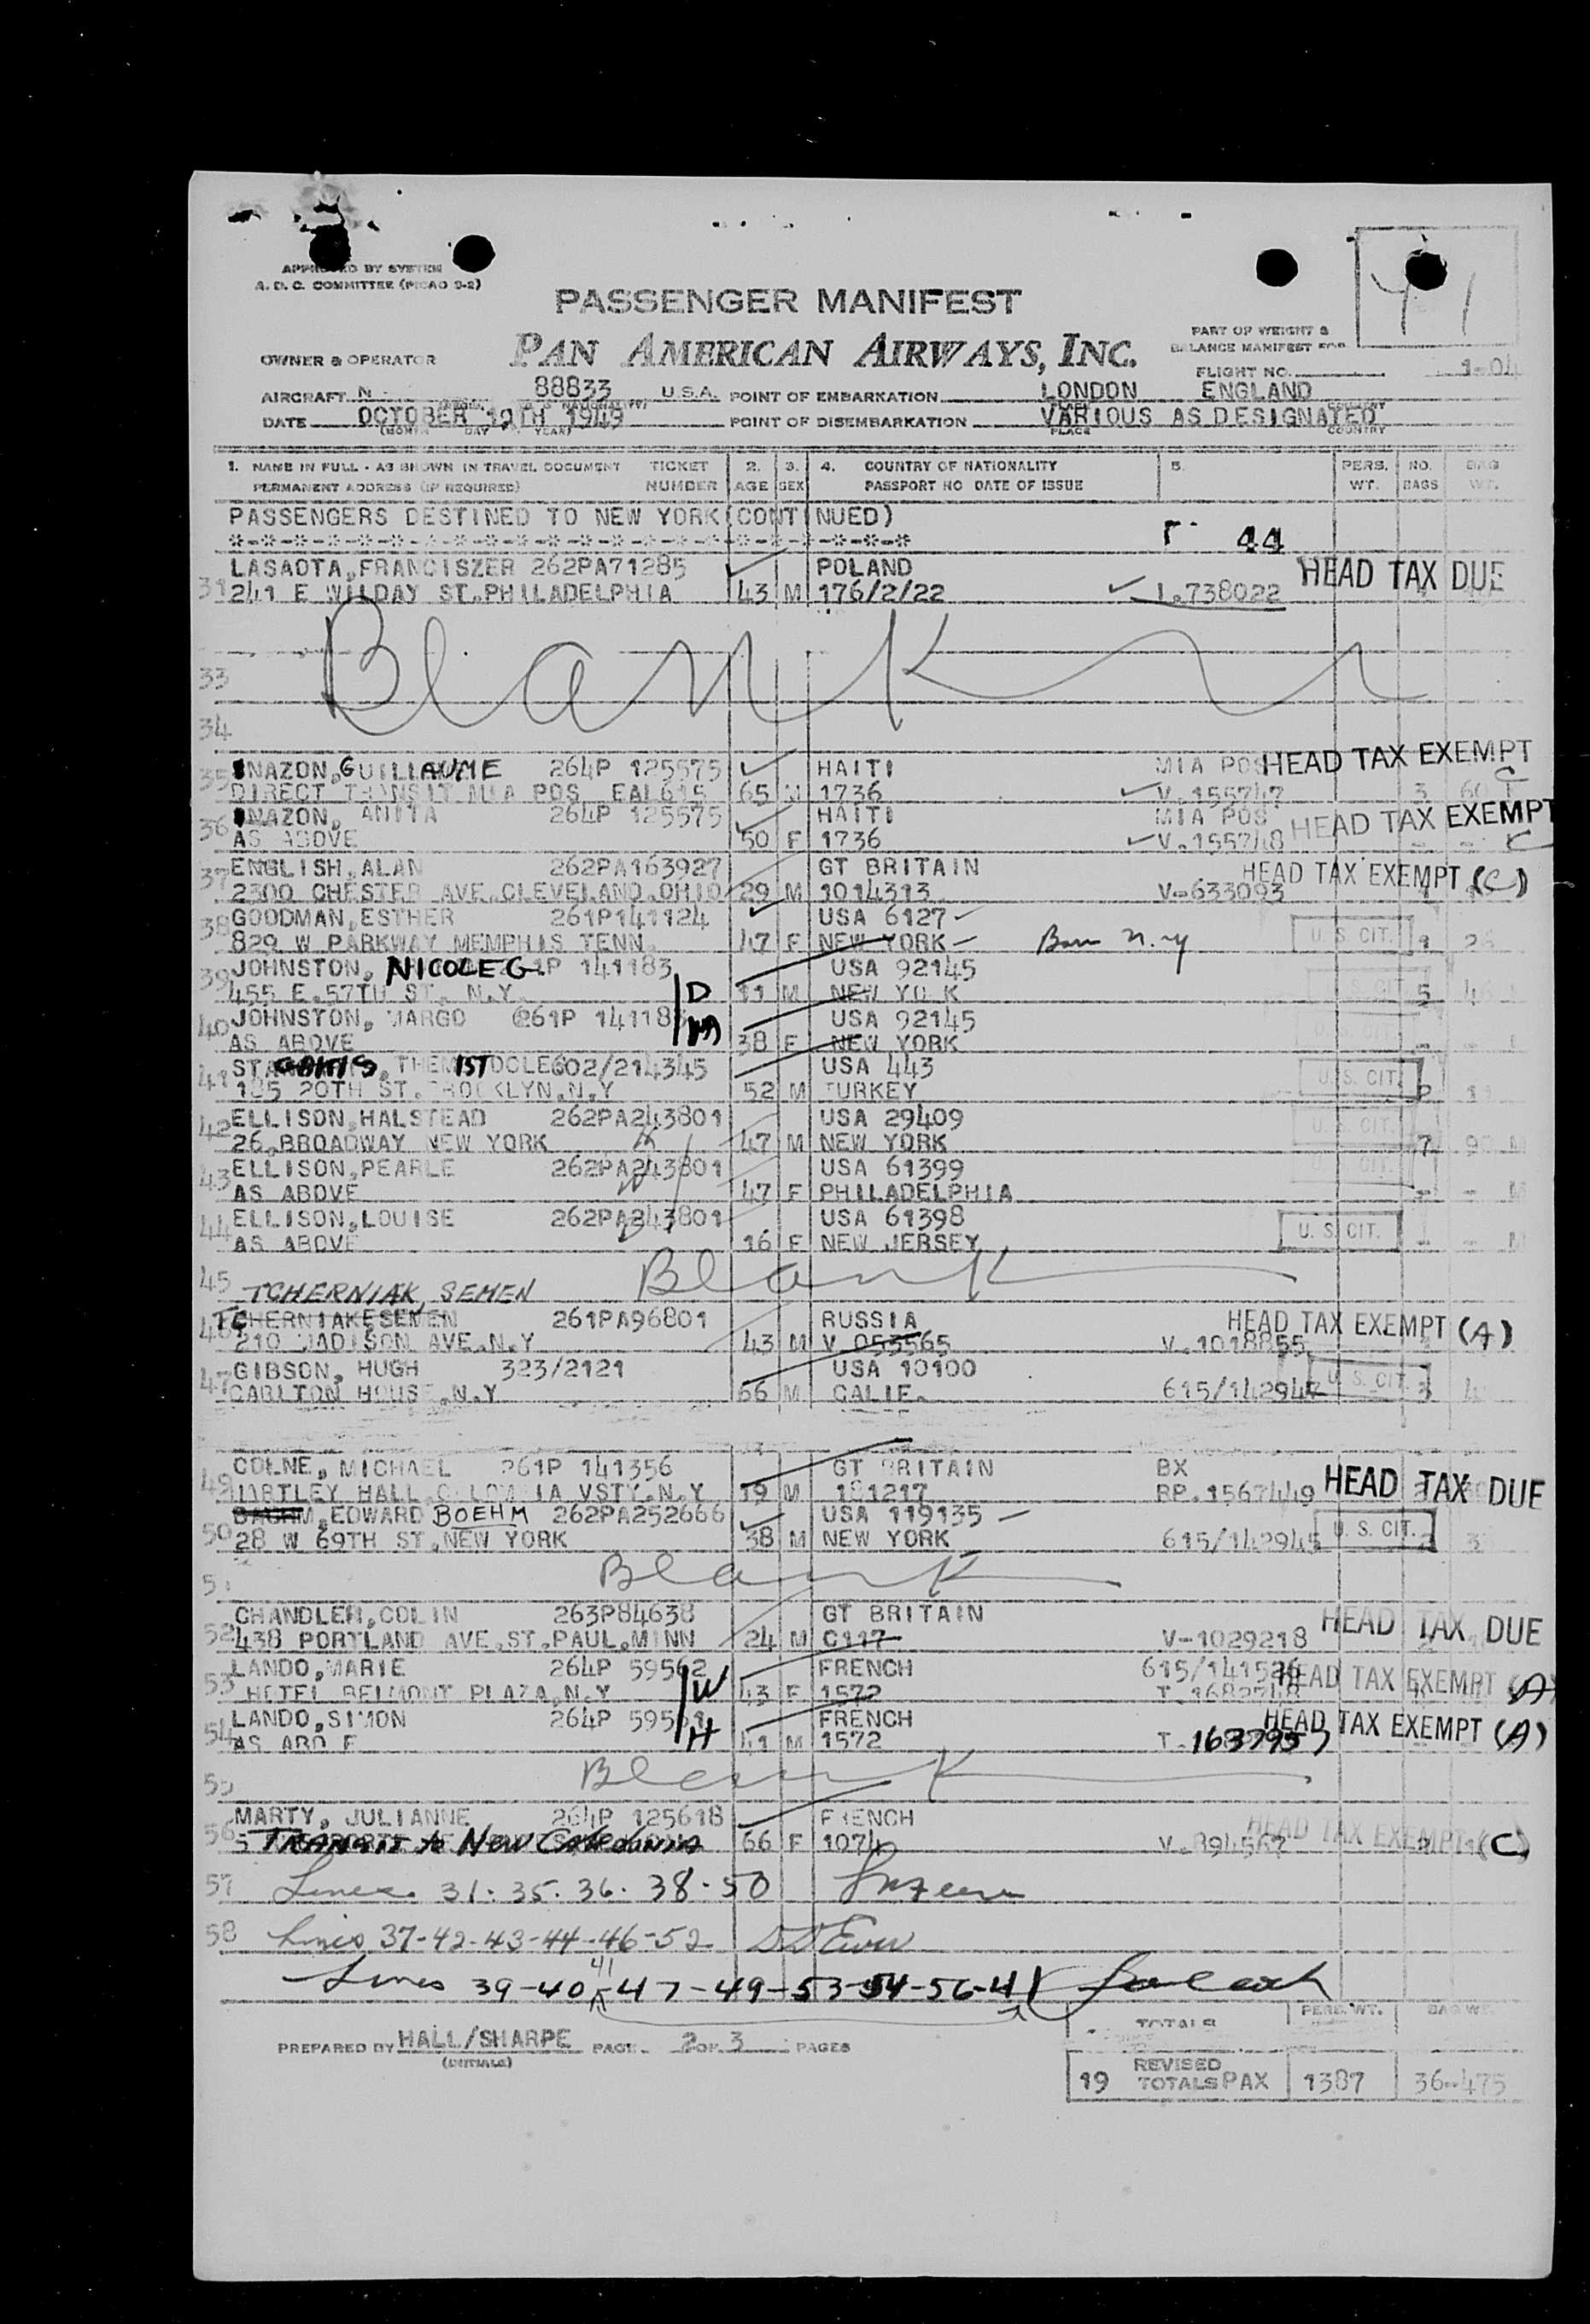 APPROVED BY SYSTEM
A. D. C. COMMITTEE (PICAO 9-2)
PASSENGER MANIFEST
41
PART OF WEIGHT &
OWNER & OPERATOR PAN AMERICAN AIRWAYS, INC. BALANCE MANIFEST FOR
FLIGHT NO. 1-04
AIRCRAFT N 88833 U.S.A. POINT OF EMBARKATION LONDON ENGLAND
DATE OCTOBER 19TH 1949 POINT OF DISEMBARKATION VARIOUS AS DESIGNATED
(MONTH DAY YEAR) PLACE COUNTRY
1. NAME IN FULL - AS SHOWN IN TRAVEL DOCUMENT TICKET 2. 3. 4. COUNTRY OF NATIONALITY 5. PERS. NO. BAG
PERMANENT ADDRESS (IF REQUIRED) NUMBER AGE SEX PASSPORT NO DATE OF ISSUE WT. BAGS WT.
PASSENGERS DESTINED TO NEW YORK(CONTINUED)
44
LASAOTA,FRANCISZER 262PA71285 POLAND HEAD TAX DUE
31 241 E WILDAY ST.PHILADELPHIA 43 M 176/2/22 I.738022
Blank
33
34
35 NAZON,GUILLAUME 264P 125575 HAITI MIA POS HEAD TAX EXEMPT
DIRECT TRANSIT MIA POS EAL615 65 M 1736 V.155747 3 60 C
36 NAZON, ANITA 264P 125575 HAITI MIA POS HEAD TAX EXEMPT
AS ABOVE 50 F 1736 V.155748 - - C
37 ENGLISH,ALAN 262PA163927 GT BRITAIN HEAD TAX EXEMPT (C)
2300 CHESTER AVE.CLEVELAND.OHIO 29 M 1014313 V-633093
38 GOODMAN,ESTHER 261P141124 USA 6127 U. S. CIT.
829 W PARKWAY MEMPHIS TENN. 47 F NEW YORK Born N.Y
39 JOHNSTON, NICOLE G 261P 141183 USA 92145 U. S. CIT.
455 E.57TH ST. N.Y. D 11 M NEW YORK 5
40 JOHNSTON, MARGO 261P 14118 USA 92145
AS ABOVE 38 F NEW YORK
41 THEMISTOCLES 602/214345 USA 443 U. S. CIT.
185 20TH ST.BROOKLYN.N.Y 52 M TURKEY 2
42 ELLISON,HALSTEAD 262PA243801 USA 29409 U. S. CIT.
26,BROADWAY NEW YORK H 47 M NEW YORK 7
43 ELLISON,PEARLE 262PA243801 USA 61399 CIT.
AS ABOVE W 47 F PHILADELPHIA - - M
44 ELLISON,LOUISE 262PA243801 USA 61398 U. S. CIT.
AS ABOVE D 16 F NEW JERSEY - - M
45 TCHERNIAK, SEMEN Blank
46 TCHERNIAKESEMEN 261PA96801 RUSSIA HEAD TAX EXEMPT (A)
210 MADISON AVE.N.Y 43 M V 053565 V.1018855
47 GIBSON, HUGH 323/2121 USA 10100 U. S. CIT.
CARLTON HOUSE.N.Y 66 M CALIF. 615/142947 3
49 COLNE, MICHAEL 261P 141356 GT BRITAIN BX HEAD TAX DUE
HARTLEY HALL.COLOMBIA VSTY.N.Y 19 M 181217 RP.1567449
50 EDWARD BOEHM 262PA252666 USA 119135 U. S. CIT.
28 W 69TH ST.NEW YORK 38 M NEW YORK 615/142945
51 Blank
52 CHANDLER,COLIN 263P84638 GT BRITAIN HEAD TAX DUE
438 PORTLAND AVE.ST.PAUL.MINN 24 M C117 V-1029218
53 LANDO,MARIE 264P 59562 FRENCH HEAD TAX EXEMPT (A)
HOTEL BELMONT PLAZA,N.Y W 43 F 1572
54 LANDO,SIMON 264P FRENCH HEAD TAX EXEMPT (A)
AS ABOVE H 41 M 1572 T.
55 Blank
56 MARTY, JULIANNE 264P 125618 FRENCH HEAD TAX EXEMPT (C)
TRANSIT to NEW CALEDONIA 66 F 1074 V.894567
57 Lines 31. 35. 36. 38. 50
58 Lines 37-42-43-44-46-52
41
Lines 39-40-47-49-53-54-56-41
TOTALS PERS. WT. BAG WT.
PREPARED BY HALL/SHARPE PAGE 2 OF 3 PAGES
(INITIALS)
19 REVISED TOTALS PAX 1387 36--475